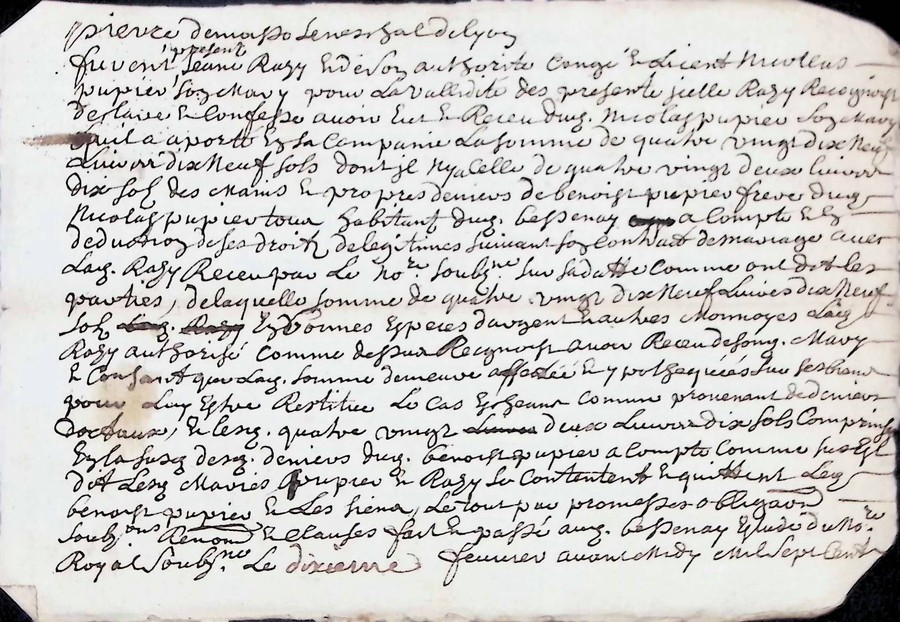 pierre demasso Seneschal de lyon
furent present Jeane Razy Et de son authorité congé et licent Nicollas
pupier son Mary pour La vallidité des presente jcelle Razy Recognoist
desclaire et Confesse avoir Eut et Receu dug. Nicolas pupier son Mary
quil a aporté En sa Companie La somme de quatre vingt dix Neuf
Livres dix Neuf sols dont jl Ny a celle de quatre vingt deux livres
dix sols des Mains et propres deniers de benoist pupier frere dug
Nicolas pupier tous habitant dug. bessenay a Compte et En
deduction de ses droits de legitimes suivant son Contract de mariage avec
Lad. Razy Receu par Le No.re soubz.né sur sa datte Comme ont dit les
parties, de laquelle somme de quatre vingt dix Neuf Livres dix Neuf
sols Razy En bonnes Especes dargent et autres Monnoyes Lad.
Razy authorisé Comme dessus Recognoist avoir Receu de song. Mary
et Consant que Lad. somme demeure affectée et ypothequées sur ses biens
pour Luy Estre Restitue Le Cas Escheant Comme provenant de deniers
doctaux, et lesq. quatre vingt deux Livres dix sols Comprins
En la susd. desd. deniers dug. benoist pupier a Compte Comme sus Est
dit Lesq Maries pupier et Razy se Contentent et quittent Led
benoist pupier et Les siens, Le tout par promesses obligaon
soubz.ons Renon.on et Clauses fait et passé aud. bessenay Estude du No.re
Royal soubz.né Le dixieme fevrier avant Midy Mil sept Cents